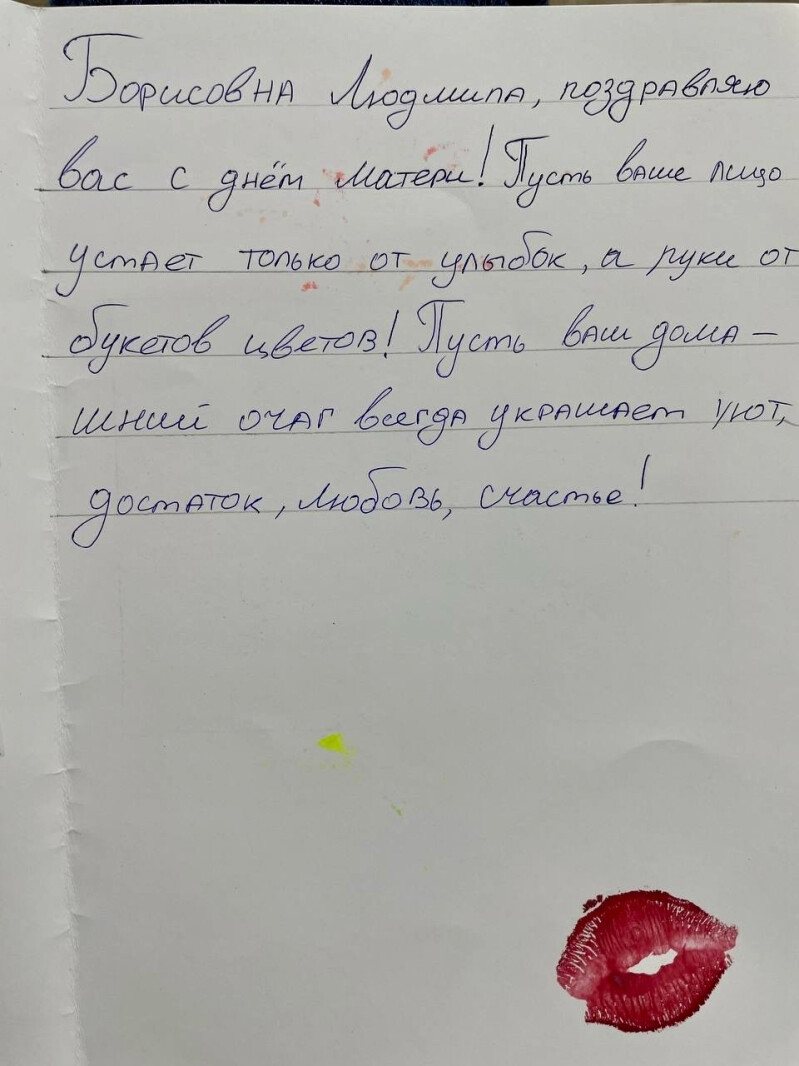 Борисовна Людмила, поздравляю
вас с днём матери! Пусть ваше лицо
устает только от улыбок, а руки от
букетов цветов! Пусть ваш дома-
шний очаг всегда украшает уют,
достаток, любовь, счастье!